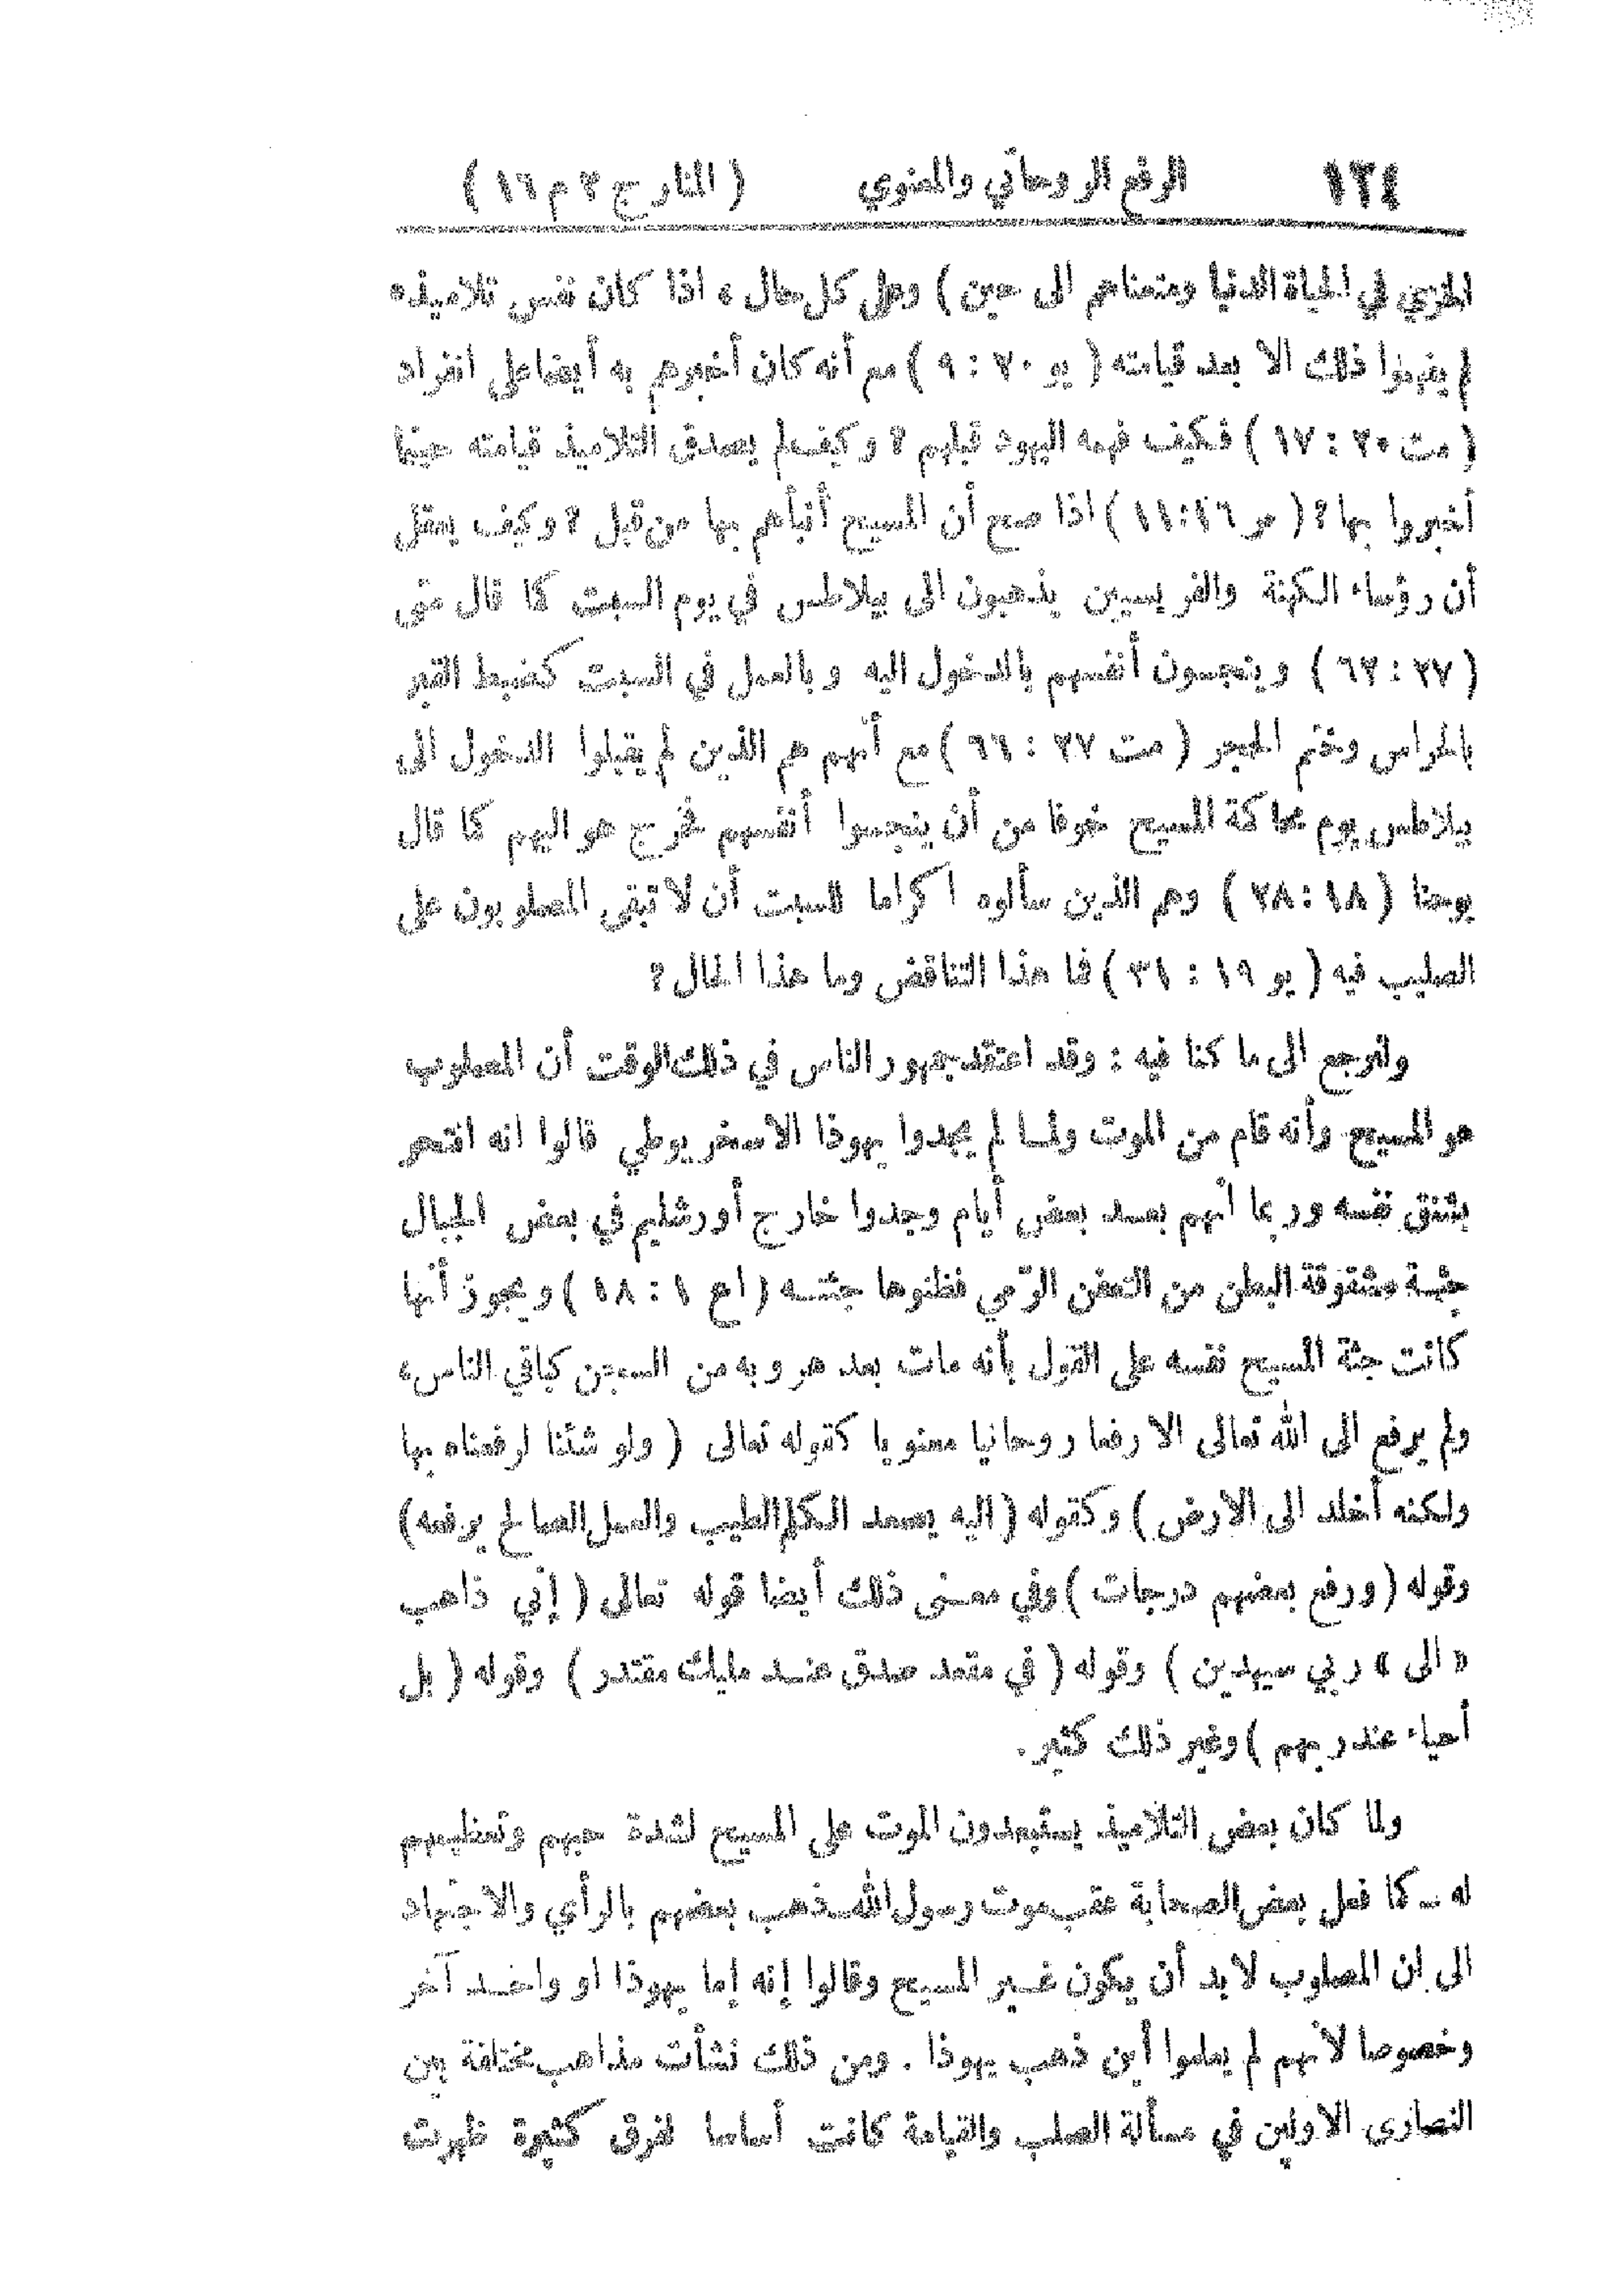 ١٢٤ الرفع الروحاني والمعنوي ( المنار ج ٢ م ١٦ )
الخزي في الحياة الدنيا ومتعناهم الى حين ) وعلى كل حال ، اذا كان نفس تلاميذه
لم يفهموا ذلك الا بعد قيامته ( يو ٢٠ : ٩ ) مع أنه كان أخبرهم به أيضا على انفراد
( مت ٢٠ : ١٧ ) فكيف فهمه اليهود قبلهم ؟ وكيف لم يصدق التلاميذ قيامته حينما
أخبروا بها ؟ ( مر ١٦ : ١١ ) اذا صح أن المسيح أنبأهم بها من قبل ؟ وكيف يعقل
أن رؤساء الكهنة والفريسيين يذهبون الى بيلاطس في يوم السبت كما قال متى
( ٢٧ : ٦٢ ) وينجسون أنفسهم بالدخول اليه وبالعمل في السبت كضبط القبر
بالحراس وختم الحجر ( مت ٢٧ : ٦٦ ) مع أنهم هم الذين لم يقبلوا الدخول الى
بيلاطس يوم محاكمة المسيح خوفا من أن ينجسوا أنفسهم فخرج هو اليهم كما قال
يوحنا ( ١٨ : ٢٨ ) وهم الذين سألوه اكراما للسبت أن لا تبقى المصلوبون على
الصليب فيه ( يو ١٩ : ٣١ ) فما هذا التناقض وما هذا الحال ؟
ولنرجع الى ما كنا فيه : وقد اعتقد جمهور الناس في ذلك الوقت أن المصلوب
هو المسيح وأنه قام من الموت ولما لم يجدوا يهوذا الاسخريوطي قالوا انه انتحر
بشنق نفسه وربما أنهم بعد بعض أيام وجدوا خارج أورشليم في بعض الجبال
جثة مشقوقة البطن من التعفن الرّمي فظنوها جثته ( اع ١ : ١٨ ) ويجوز أنها
كانت جثة المسيح نفسه على القول بأنه مات بعد هروبه من السجن كباقي الناس ،
ولم يرفع الى الله تعالى الا رفعا روحانيا معنويا كقوله تعالى ( ولو شئنا لرفعناه بها
ولكنه أخلد الى الارض ) وكقوله ( اليه يصعد الكلم الطيب والعمل الصالح يرفعه )
وقوله ( ورفع بعضهم درجات ) وفي معنى ذلك أيضا قوله تعالى ( إني ذاهب
« الى » ربي سيهدين ) وقوله ( في مقعد صدق عند مليك مقتدر ) وقوله ( بل
أحياء عند ربهم ) وغير ذلك كثير .
ولما كان بعض التلاميذ يستبعدون الموت على المسيح لشدة حبهم وتعظيمهم
له ــ كما فعل بعض الصحابة عقب موت رسول الله ــ ذهب بعضهم بالرأي والاجتهاد
الى ان المصلوب لا بد أن يكون غير المسيح وقالوا إنه إما يهوذا او واحد آخر
وخصوصا لأنهم لم يعلموا أين ذهب يهوذا . ومن ذلك نشأت مذاهب مختلفة بين
النصارى الاولين في مسألة الصلب والقيامة كانت أساسا لفرق كثيرة ظهرت